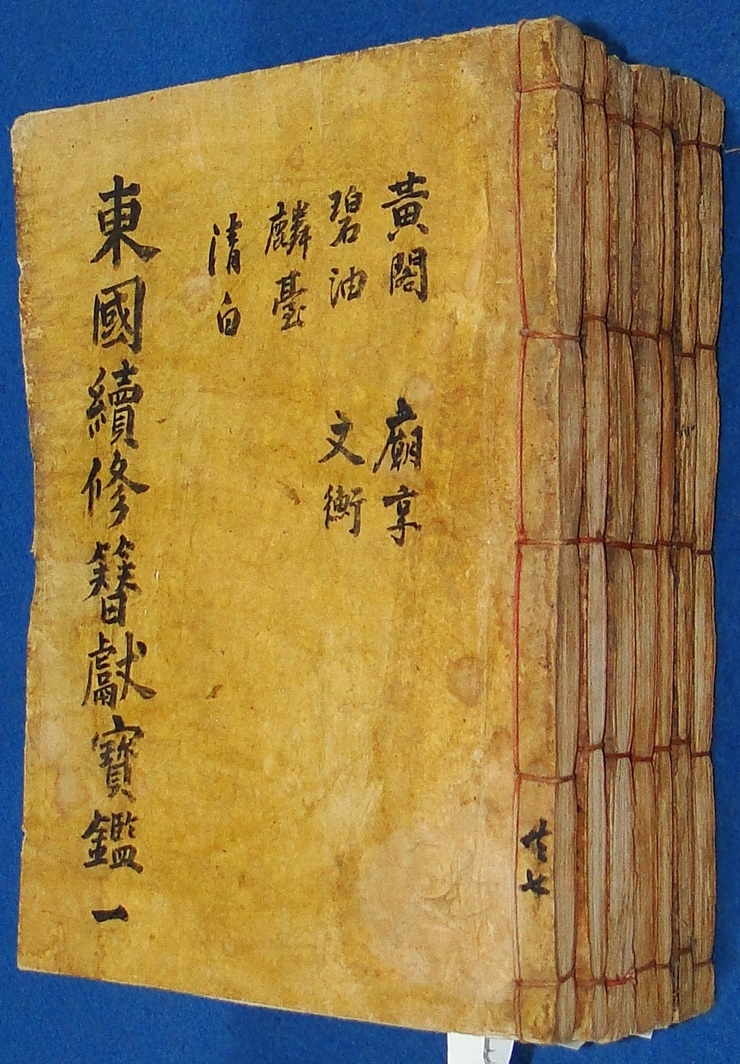 黃閣 廟享
碧油 文衡
麟臺
清白
東國續修簪獻寶鑑 一
共七